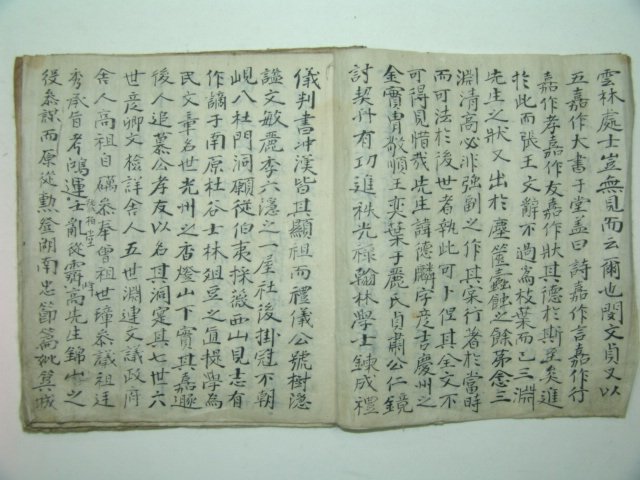 雲林處士豈無見而云爾也閔文貞又以
五嘉作大書于堂盖曰詩嘉作言嘉作行
嘉作孝嘉作友嘉作狀其德於斯至矣進
於此而張王文辭不過為枝葉而已三淵
先生之狀又出於塵篋蠹蝕之餘第念三
淵清高必非強副之作其采行著於當時
而可法於後世者執此可卜但其全文不
可得見惜哉先生諱德麟字彦吉慶州之
金實胄敬順王奕葉于麗氏貞肅公仁鏡
討契丹有功進秩光祿翰林學士鍊成禮
儀判書冲漢皆其顯祖而禮儀公號樹隱
謚文敏麗季六隱之一屋社後掛冠不朝
峴八杜門洞願從伯夷採薇西山見志有
作謫于南原杜谷士林廵豆之直提學為
民文章名世光州之杏燈山下實其嘉遯
後人追慕公孝友以名其洞寔其七世六
世彦卿文檢詳舍人五世淵連文議政府
舍人高祖自礪叅奉曾祖世瑋叅議祖廷
秀承旨考鴻運號栢堂士亂從霽峰高先生錦山之
役叅謀而原從勲登湖南忠節篇妣箕城